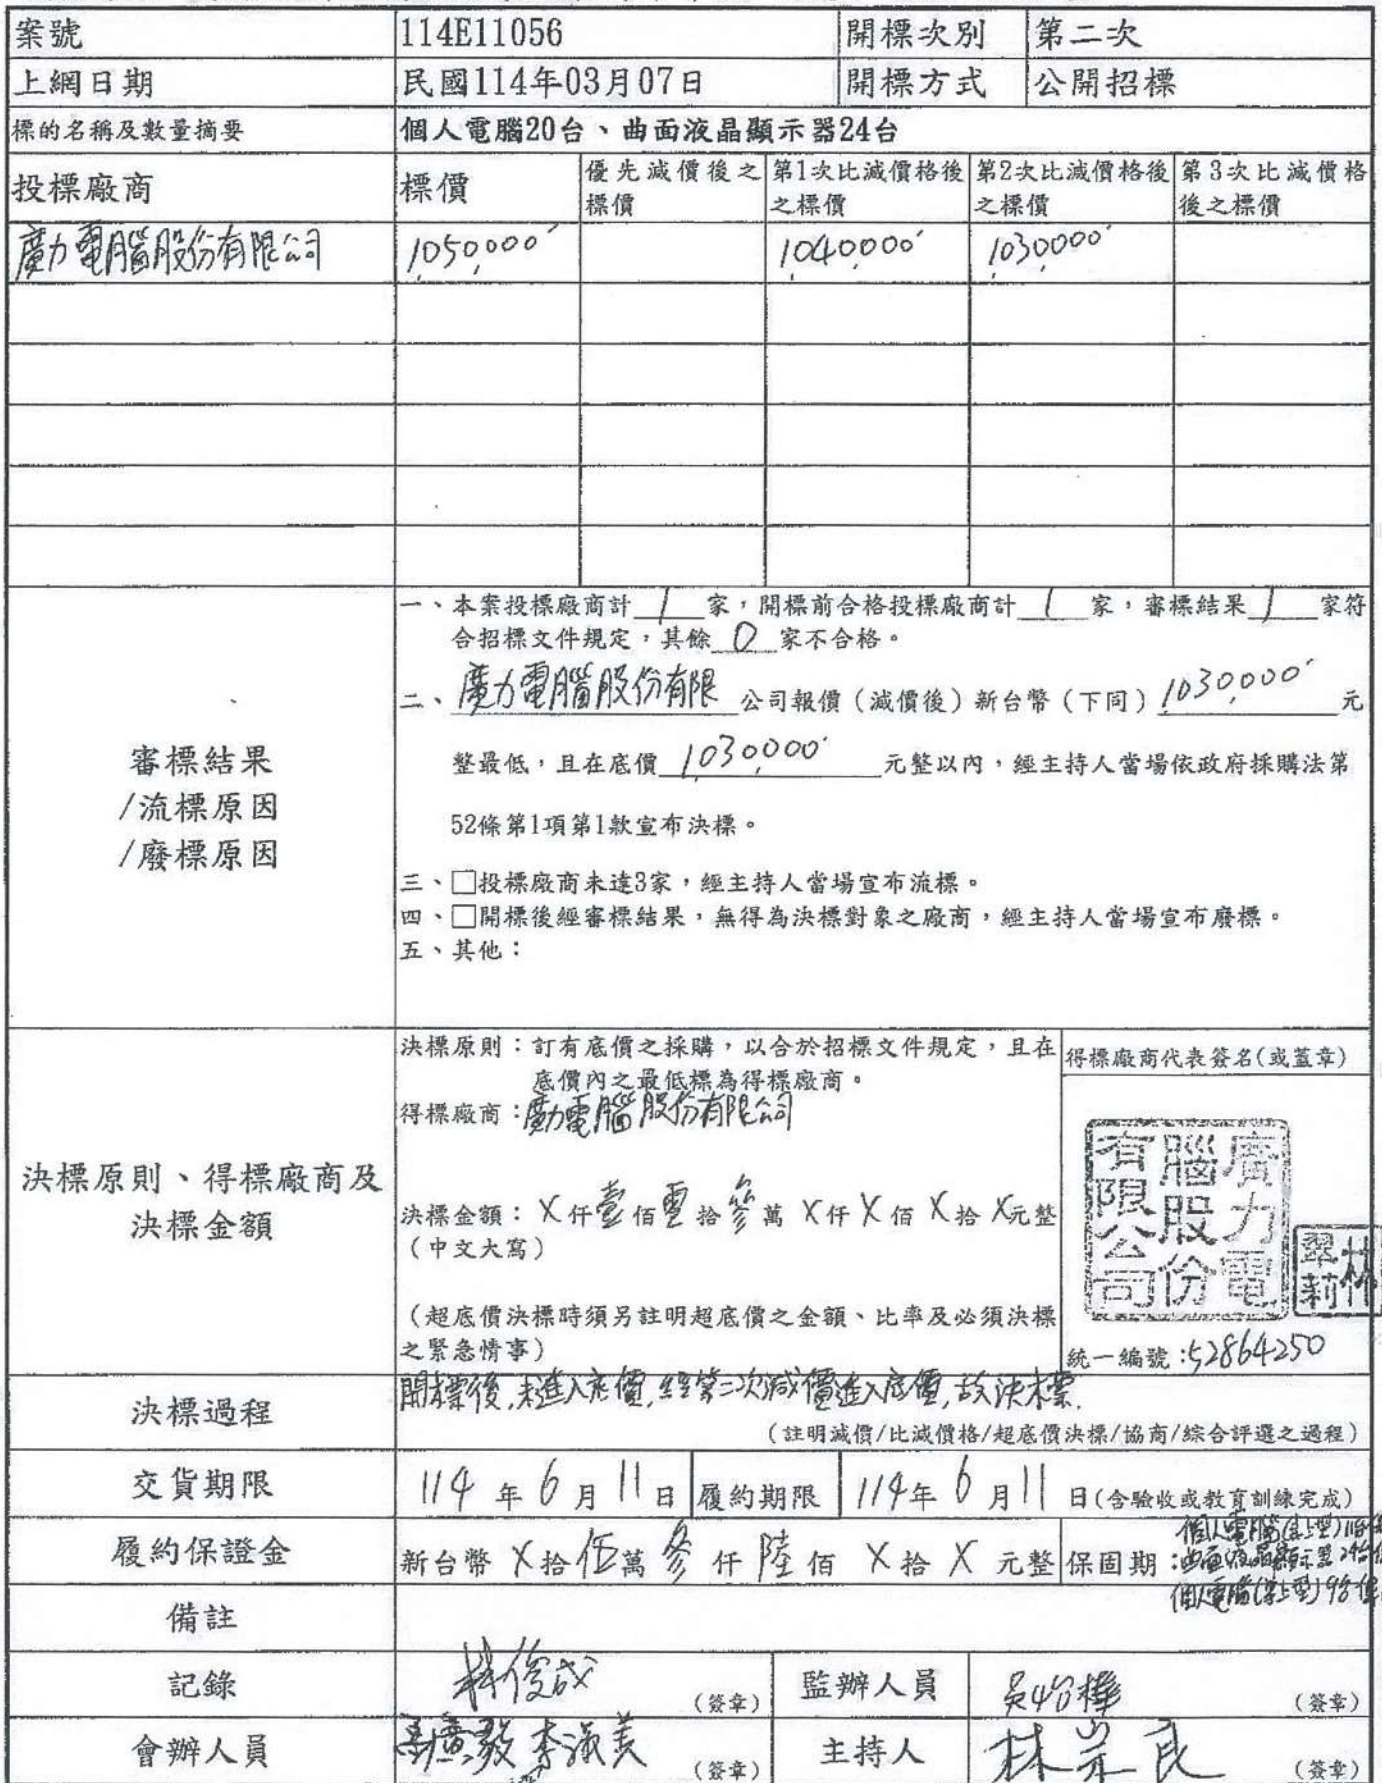 案號 114E11056 開標次別 第二次
上網日期 民國114年03月07日 開標方式 公開招標
標的名稱及數量摘要 個人電腦20台、曲面液晶顯示器24台
投標廠商 標價 優先減價後之標價 第1次比減價格後之標價 第2次比減價格後之標價 第3次比減價格後之標價
廣力電腦股份有限公司 1,050,000 1,040,000 1,030,000
審標結果
/流標原因
/廢標原因
一、本案投標廠商計 1 家,開標前合格投標廠商計 1 家,審標結果 1 家符
合招標文件規定,其餘 0 家不合格。
二、廣力電腦股份有限 公司報價(減價後)新台幣(下同) 1,030,000 元
整最低,且在底價 1,030,000 元整以內,經主持人當場依政府採購法第
52條第1項第1款宣布決標。
三、□投標廠商未達3家,經主持人當場宣布流標。
四、□開標後經審標結果,無得為決標對象之廠商,經主持人當場宣布廢標。
五、其他:
決標原則、得標廠商及
決標金額
決標原則:訂有底價之採購,以合於招標文件規定,且在
底價內之最低標為得標廠商。
得標廠商:廣力電腦股份有限公司
決標金額:X仟壹佰零拾參萬X仟X佰X拾X元整
(中文大寫)
(超底價決標時須另註明超底價之金額、比率及必須決標
之緊急情事)
得標廠商代表簽名(或蓋章)
廣力電
腦股份
有限公司
林
翠莉
統一編號:52864250
決標過程 開標後,未進入底價,經第二次減價進入底價,故決標.
(註明減價/比減價格/超底價決標/協商/綜合評選之過程)
交貨期限 114年6月11日 履約期限 114年6月11日(含驗收或教育訓練完成)
履約保證金 新台幣X拾伍萬參仟陸佰X拾X元整 保固期:
備註
記錄 林俊成 (簽章) 監辦人員 (簽章)
會辦人員 李淑美 (簽章) 主持人 林崇良 (簽章)